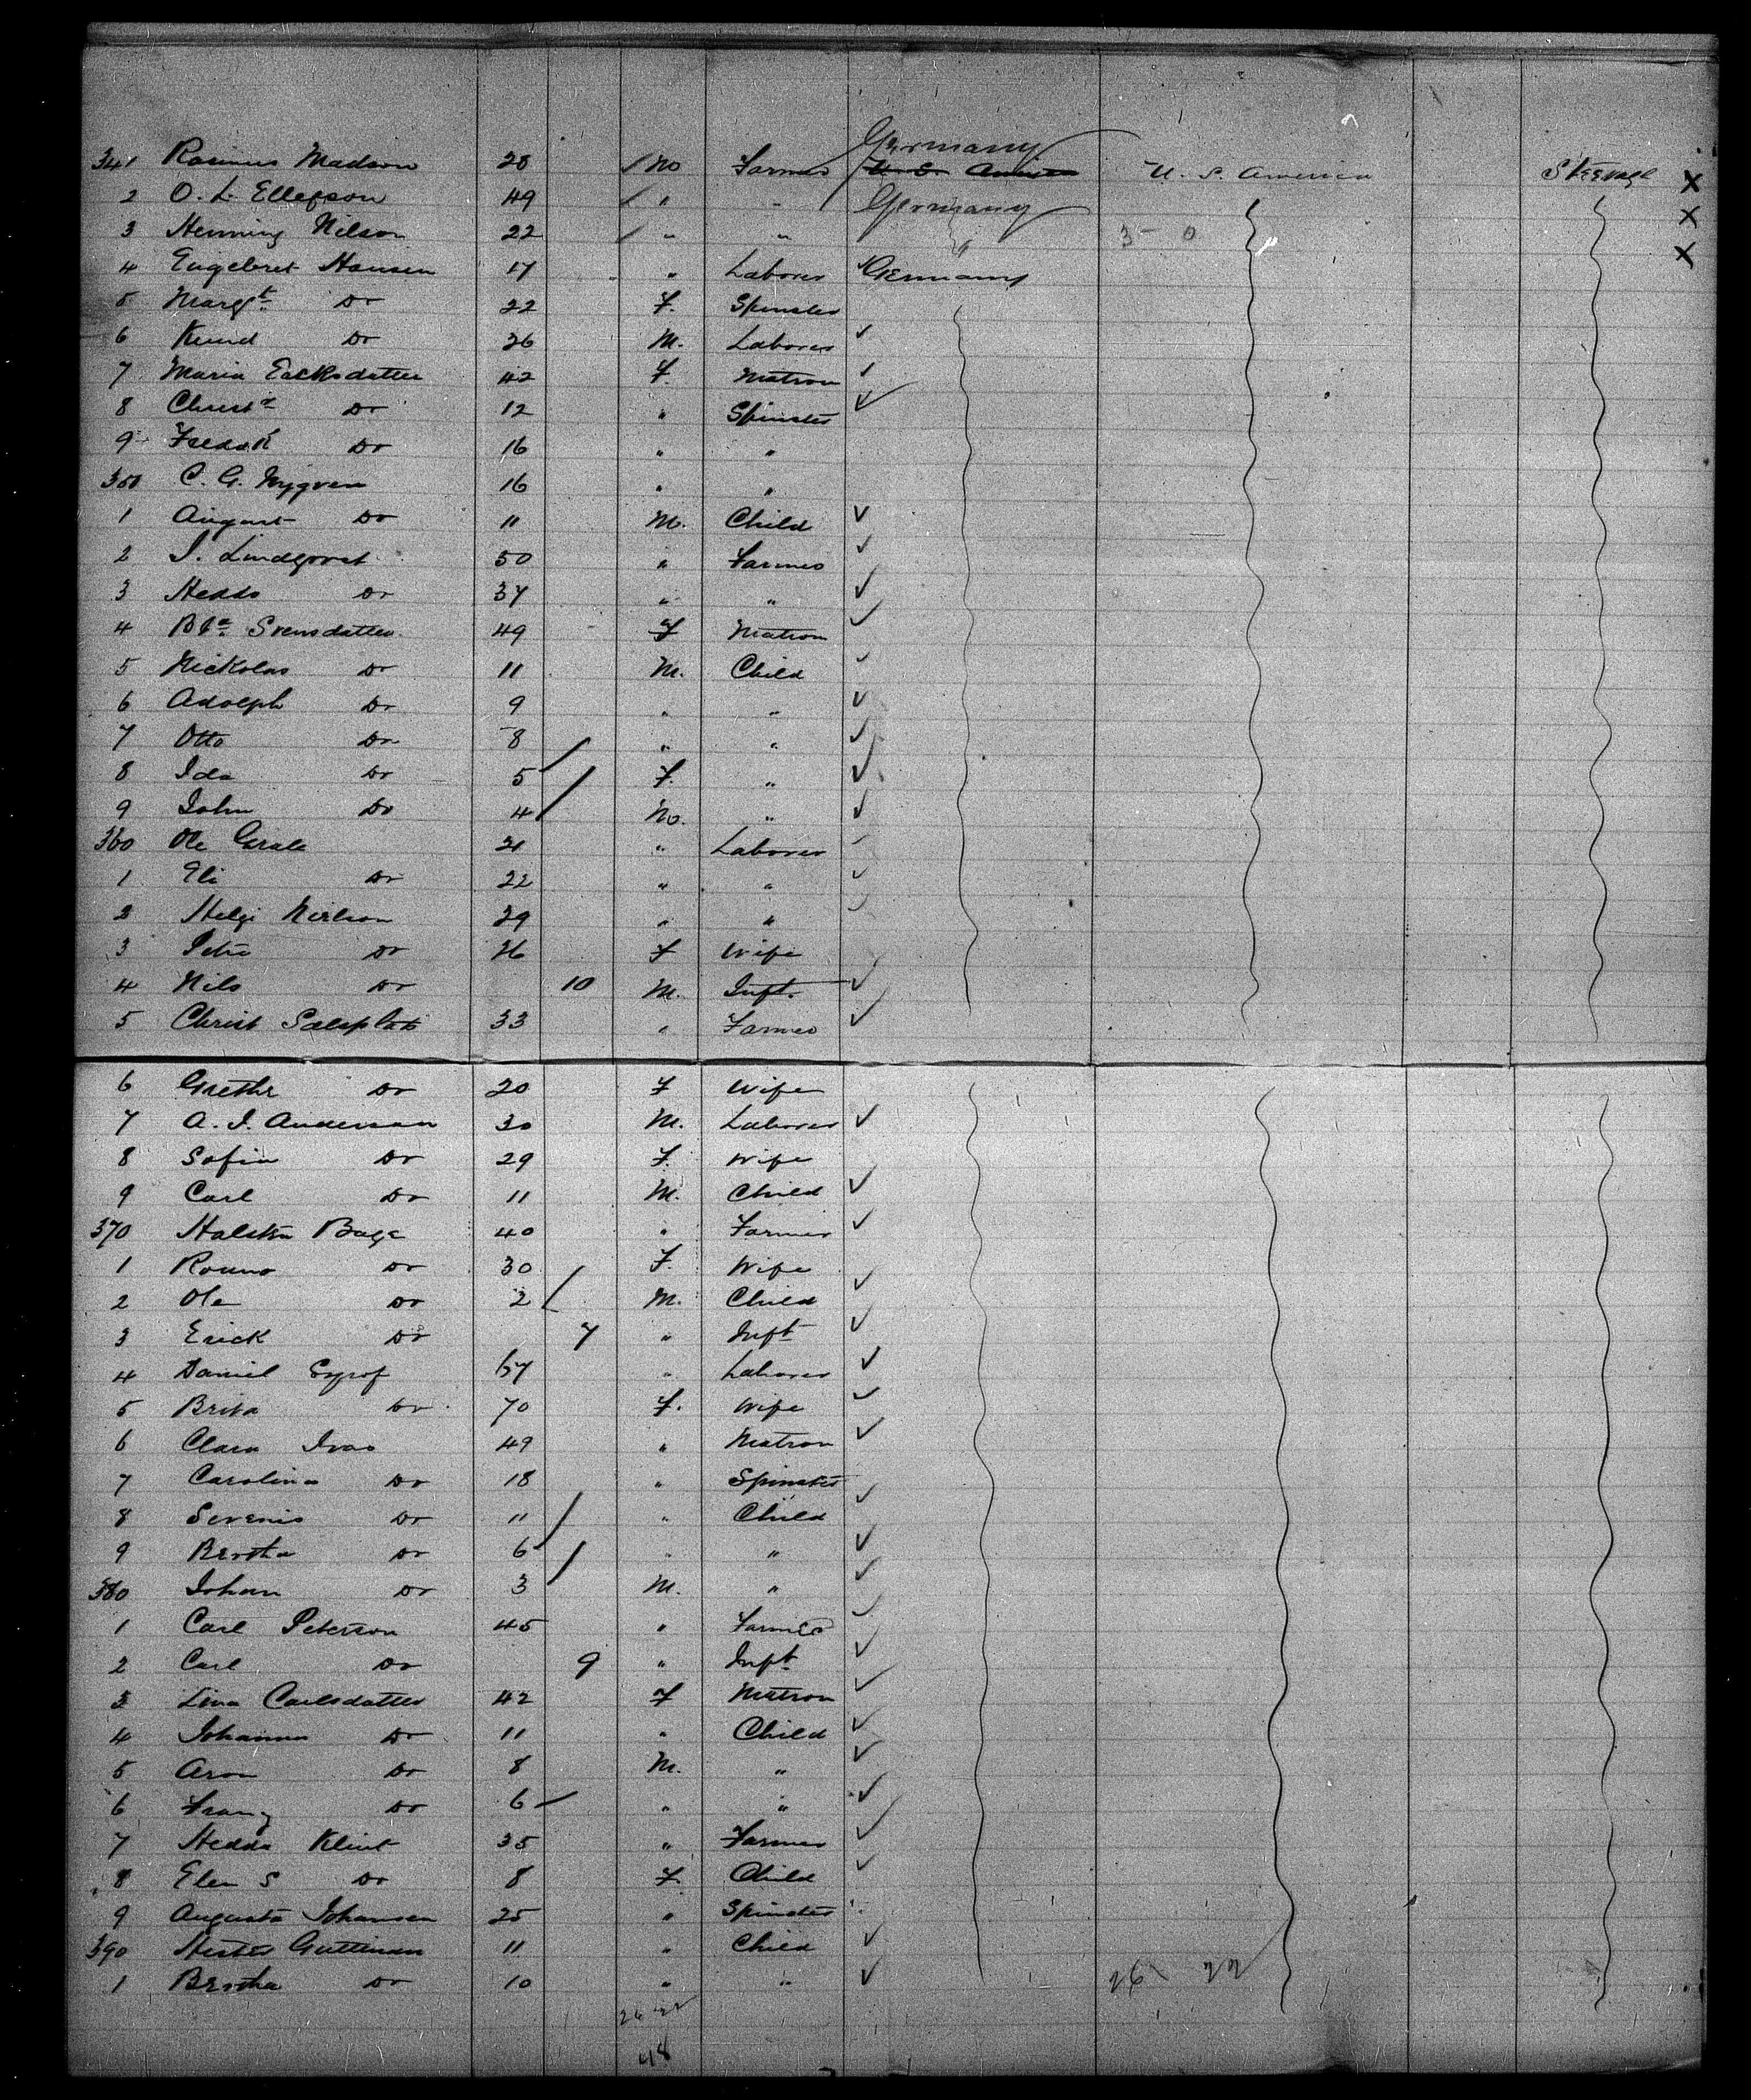 Germany
341 Rasmus Madson 28 Mo Farmer U.S. America U. S. America Steerage X
2 O. L. Ellefson 49 " " Germany X
3 Henning Nilson 22 " " 3 - 0 X
4 Engebret Hansen 17 " Laborer Germany
5 Margt Do 22 F. Spinster
6 Knud Do 26 M. Laborer
7 Maria Eacksdatter 42 F. Matron
8 Christa Do 12 " Spinster
9 Fredak Do 16 " "
350 C. G. Nygren 16 " "
1 August Do 11 M. Child
2 I. Lindqvist 50 " Farmer
3 Hedds Do 37 " "
4 Bta Svensdatter 49 F Matron
5 Nickolas Do 11 M. Child
6 Adolph Do 9 " "
7 Otto Do 8 " "
8 Ida Do 5 F. "
9 John Do 4 Mo. "
360 Ole Grale 21 " Laborer
1 Eli Do 22 " "
2 Helge Neilson 29 " "
3 Petra Do 26 F Wife
4 Nils Do 10 M. Inft.
5 Christ 33 " Farmer
6 Grethe Do 20 F Wife
7 A. I. Anderson 30 M. Laborer
8 Sofia Do 29 F. Wife
9 Carl Do 11 M. Child
370 Halstin Bage 40 " Farmer
1 Rouno Do 30 F. Wife
2 Ole Do 2 M. Child
3 Erick Do 7 " Inft
4 Daniel 67 " Laborer
5 Brita Do 70 F. Wife
6 Clara Ivao 49 " Matron
7 Carolina Do 18 " Spinster
8 Severis Do 11 " Child
9 Bertha Do 6 " "
380 Johan Do 3 M. "
1 Carl Peterson 45 " Farmer
2 Carl Do 9 " Inft
3 Lina Carlsdatter 42 F Matron
4 Johanna Do 11 " Child
5 Aron Do 8 M. "
6 Franz Do 6 " "
7 Hedda Klint 35 " Farmer
8 Elen S Do 8 F. Child
9 Augusta Johansen 25 " Spinster
390 Hester Guttman 11 " Child
1 Bertha Do 10 " "
26 22
48